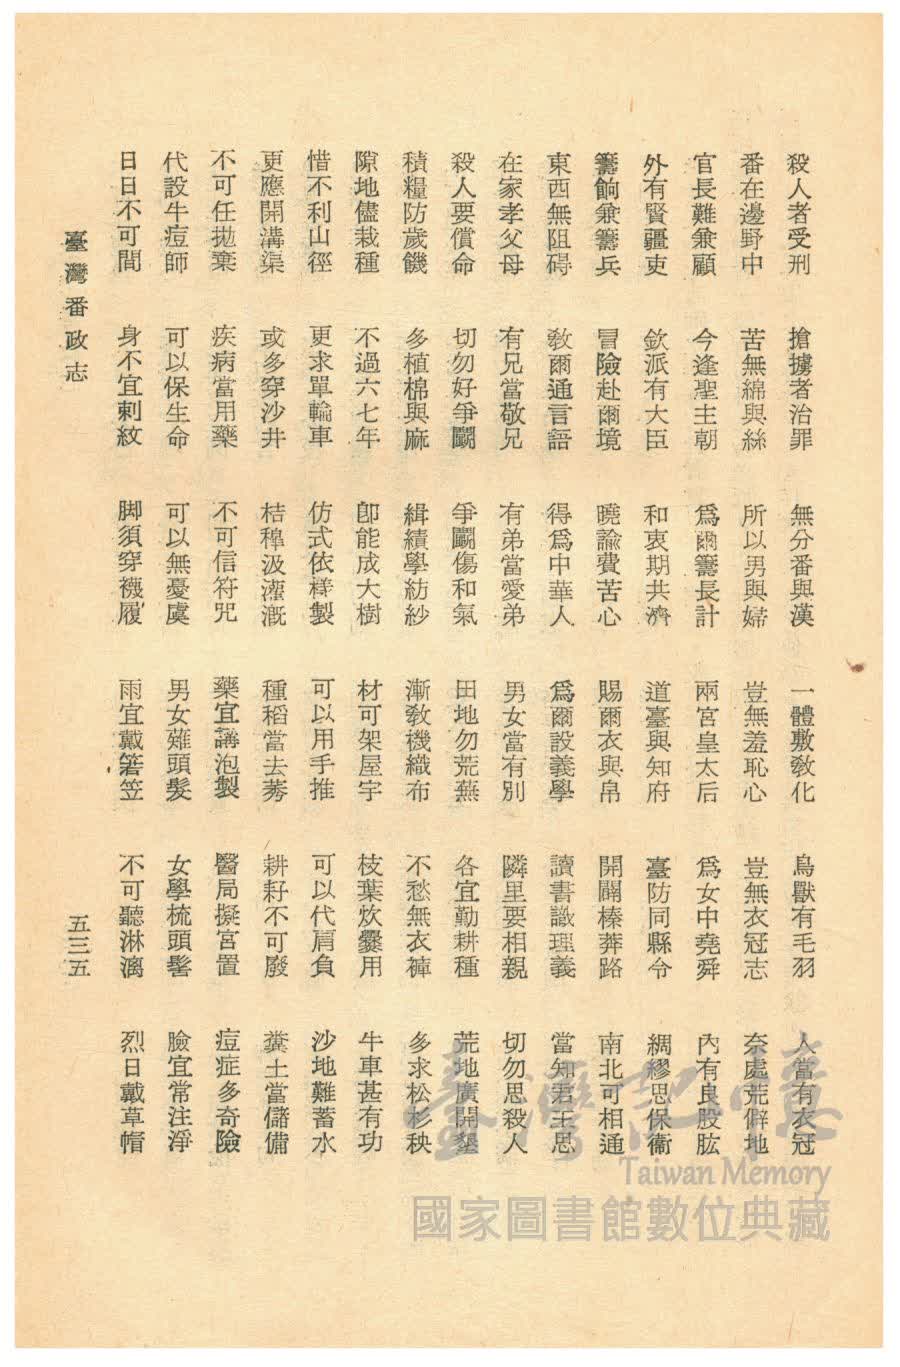 殺人者受刑　搶擄者治罪　無分番與漢　一體敷教化　鳥獸有毛羽　人當有衣冠
番在邊野中　苦無綿與絲　所以男與婦　豈無羞恥心　豈無衣冠志　奈處荒僻地
官長難兼顧　今逢聖主朝　爲爾籌長計　兩宮皇太后　爲女中堯舜　內有良股肱
外有賢疆吏　欽派有大臣　和衷期共濟　道臺與知府　臺防同縣令　綢繆思保衞
籌餉兼籌兵　冒險赴爾境　曉諭費苦心　賜爾衣與帛　開闢榛莽路　南北可相通
東西無阻碍　敎爾通言語　得爲中華人　爲爾設義學　讀書識理義　當知君王恩
在家孝父母　有兄當敬兄　有弟當愛弟　男女當有別　隣里要相親　切勿思殺人
殺人要償命　切勿好爭鬭　爭鬭傷和氣　田地勿荒蕪　各宜勤耕種　荒地廣開墾
積糧防歲饑　多植棉與麻　緝績學紡紗　漸敎機織布　不愁無衣褲　多求松杉秧
隙地儘栽種　不過六七年　卽能成大樹　材可架屋宇　枝葉炊爨用　牛車甚有功
惜不利山徑　更求單輪車　仿式依樣製　可以用手推　可以代肩負　沙地難蓄水
更應開溝渠　或多穿沙井　桔橰汲灌漑　種稻當去莠　耕耔不可廢　糞土當儲備
不可任拋棄　疾病當用藥　不可信符咒　藥宜講泡製　醫局擬宮置　痘症多奇險
代設牛痘師　可以保生命　可以無憂虞　男女薙頭髮　女學梳頭髻　臉宜常注淨
日日不可間　身不宜刺紋　脚須穿襪履　雨宜戴箬笠　不可聽淋漓　烈日戴草帽
臺灣番政志　五三五
臺灣記憶
Taiwan Memory
國家圖書館數位典藏